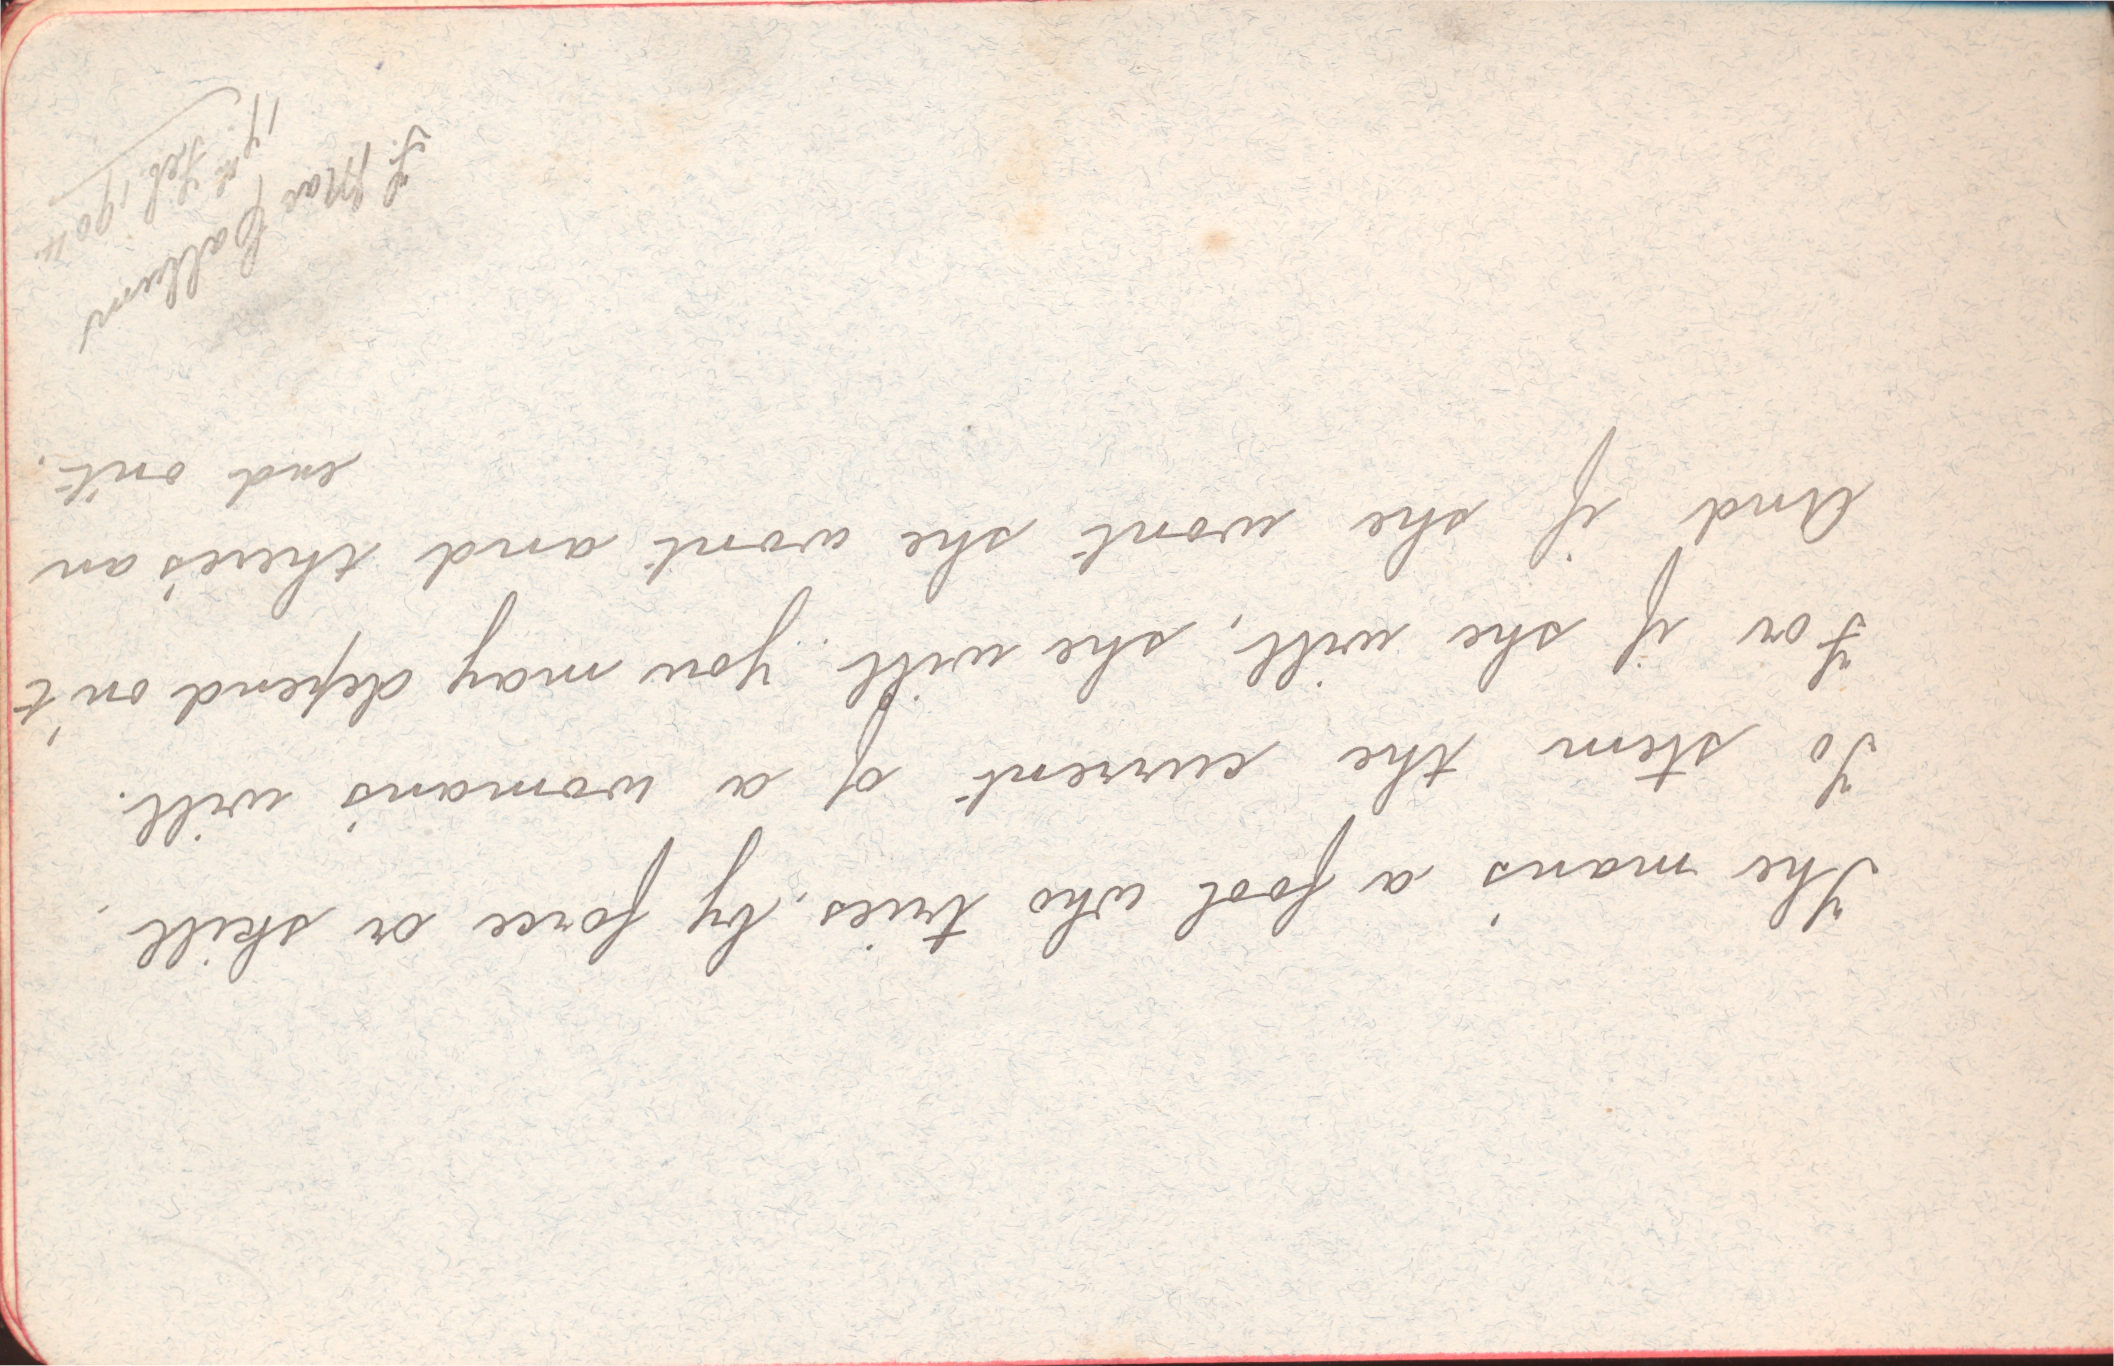 The man's a fool who tries, by force or skill,
To stem the current of a woman's will.
For if she will, she will you may depend on't
And if she won't she won't and there's an
end on't.
F. MacCallum
17th Feb. 1904.